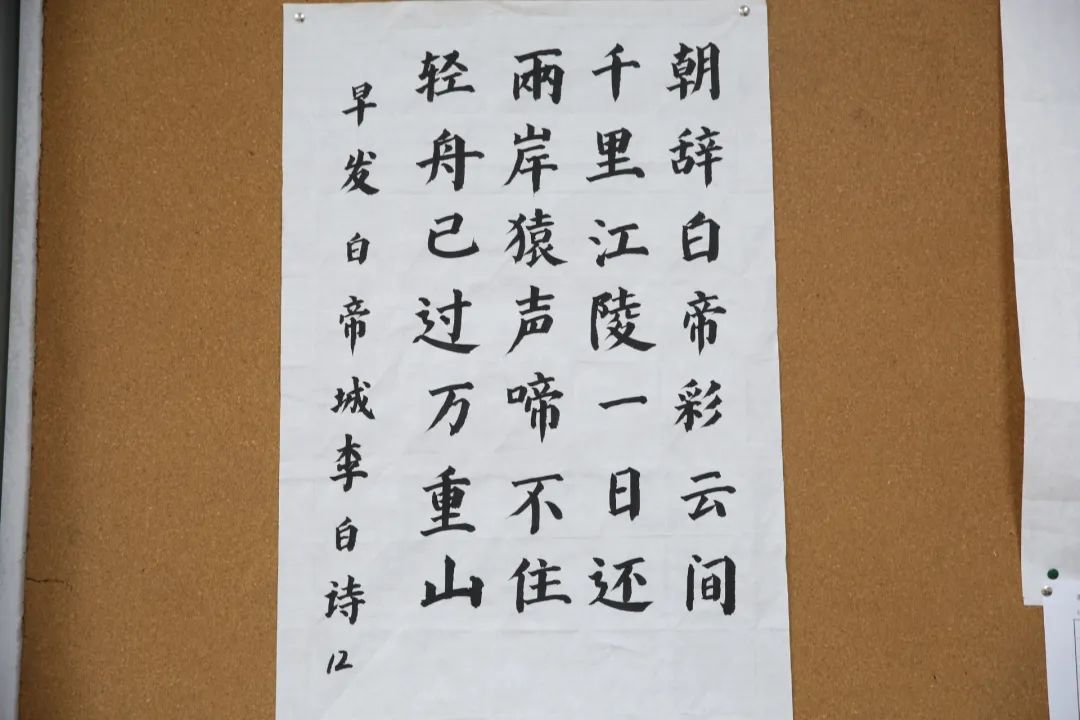 朝辞白帝彩云间
千里江陵一日还
兩岸猿声啼不住
轻舟已过万重山
早发白帝城李白诗 12